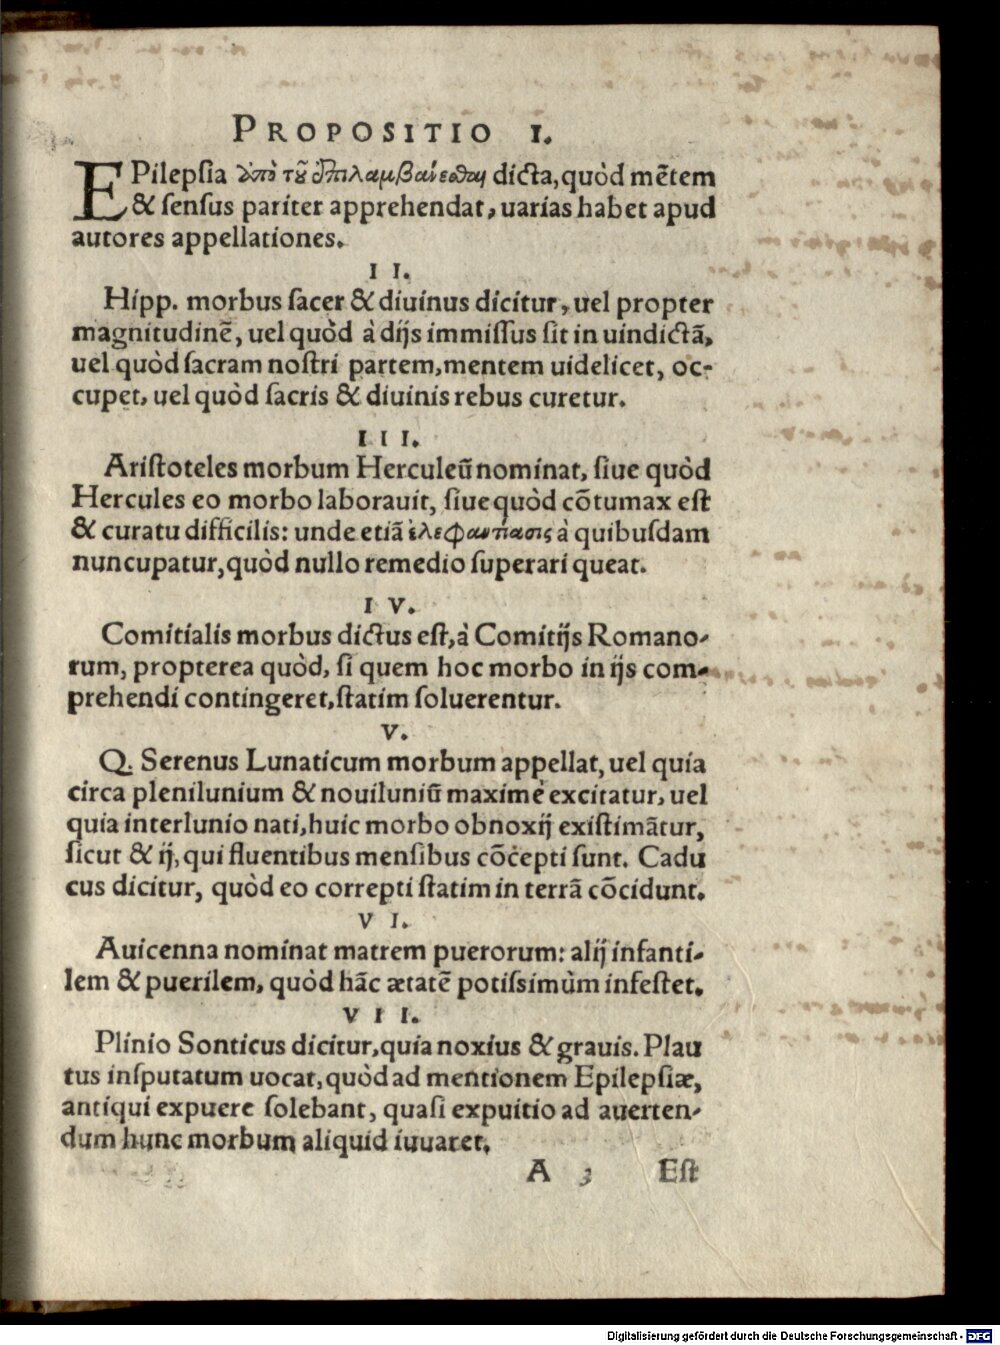 PROPOSITIO I.
EPilepſia ἀπὸ τοῦ ἐπιλαμβάνεσθαι dicta, quòd mẽtem
& ſenſus pariter apprehendat, uarias habet apud
autores appellationes.
II.
Hipp. morbus ſacer & diuinus dicitur, uel propter
magnitudinẽ, uel quòd à dijs immiſſus ſit in uindictã,
uel quòd ſacram noſtri partem, mentem uidelicet, oc-
cupet, uel quòd ſacris & diuinis rebus curetur.
III.
Ariſtoteles morbum Herculeũ nominat, ſiue quòd
Hercules eo morbo laborauit, ſiue quòd cõtumax eſt
& curatu difficilis: unde etiã ἐλεφαντίασις à quibuſdam
nuncupatur, quòd nullo remedio ſuperari queat.
IV.
Comitialis morbus dictus eſt, à Comitijs Romano-
rum, propterea quòd, ſi quem hoc morbo in ijs com-
prehendi contingeret, ſtatim ſoluerentur.
V.
Q. Serenus Lunaticum morbum appellat, uel quia
circa plenilunium & nouiluniũ maximè excitatur, uel
quia interlunio nati, huic morbo obnoxij exiſtimãtur,
ſicut & ij, qui fluentibus menſibus cõcepti ſunt. Cadu
cus dicitur, quòd eo correpti ſtatim in terrã cõcidunt.
VI.
Auicenna nominat matrem puerorum: alij infanti-
lem & puerilem, quòd hãc ætatẽ potiſsimùm infeſtet.
VII.
Plinio Sonticus dicitur, quia noxius & grauis. Plau
tus inſputatum uocat, quòd ad mentionem Epilepſiæ,
antiqui expuere ſolebant, quaſi expuitio ad auerten-
dum hunc morbum aliquid iuuaret.
A 3 Eſt
Digitalisierung gefördert durch die Deutsche Forschungsgemeinschaft - DFG